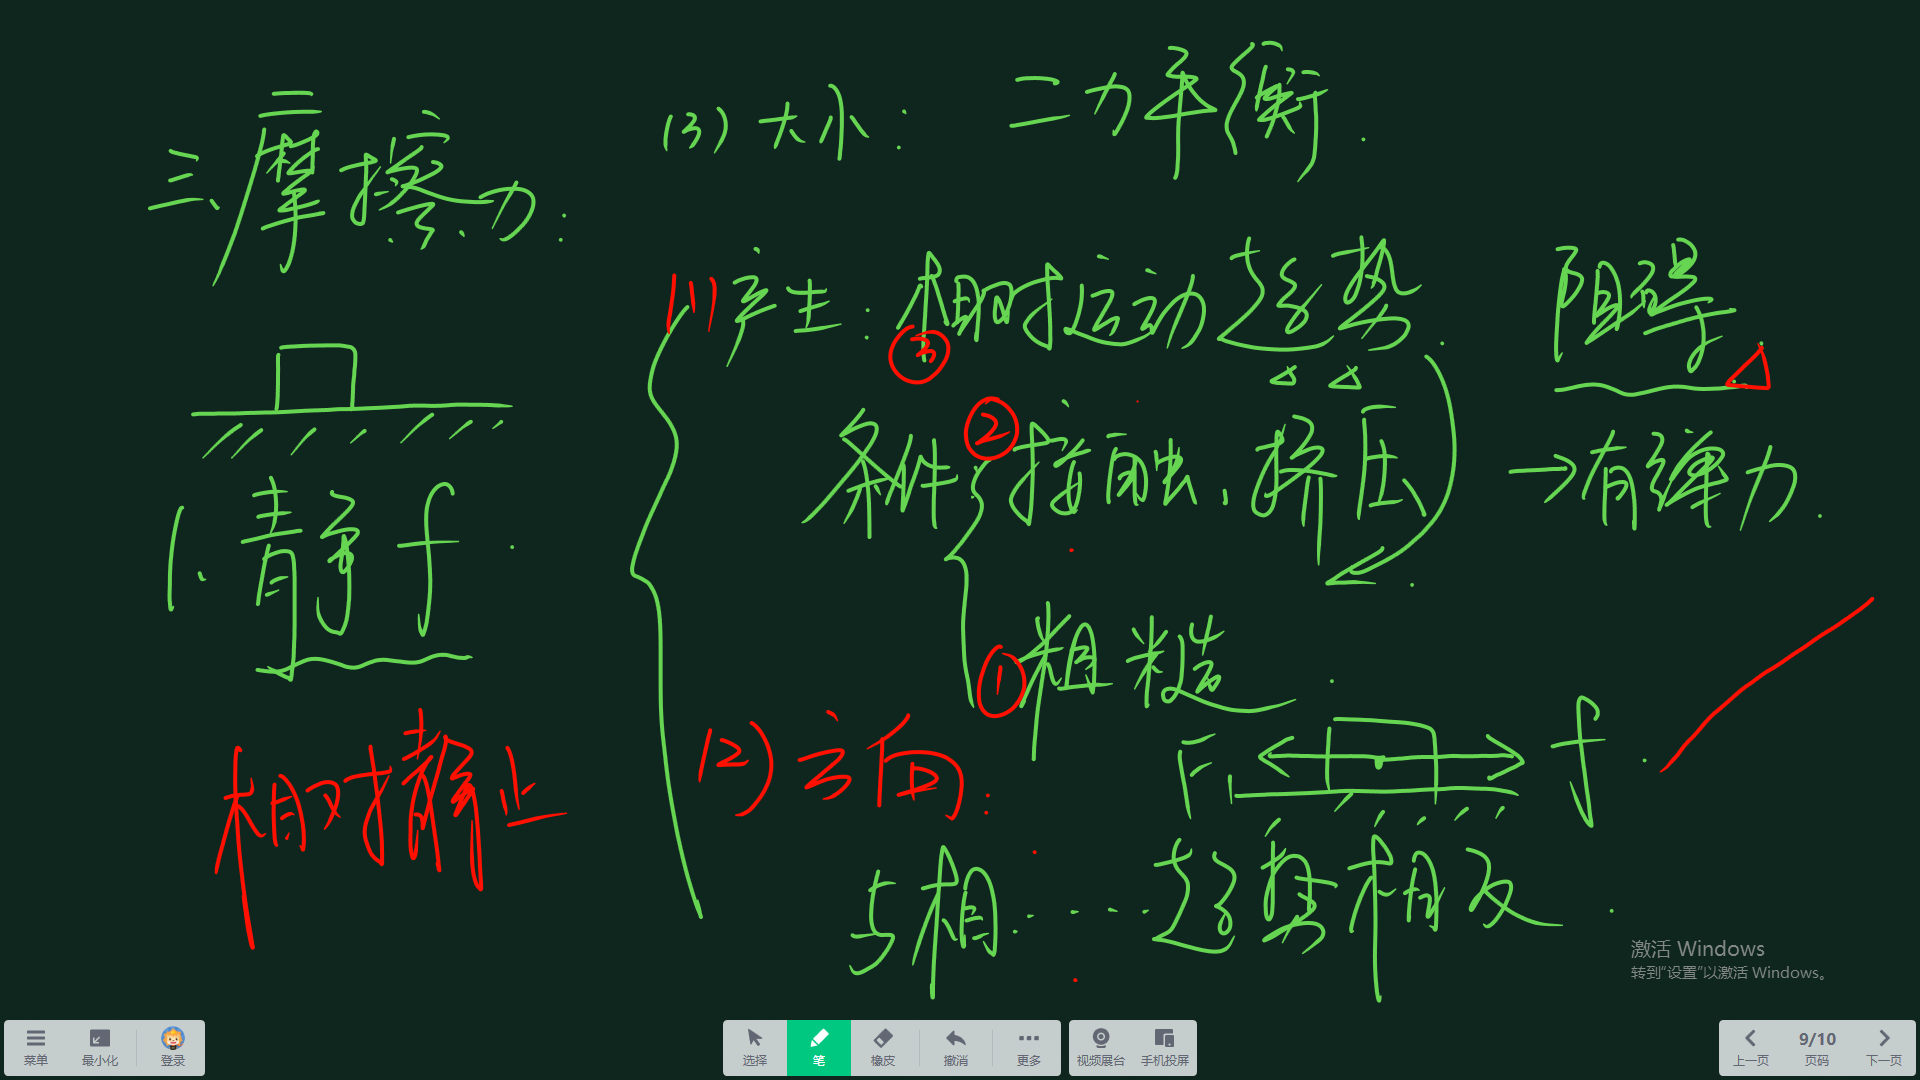 三、摩擦力:
(3) 大小: 二力平衡.
(1) 产生: 相对运动趋势. 阻碍
③
条件 ② 接触、挤压 → 有弹力.
1. 静f.
① 粗糙.
相对静止
(2) 方向: F₁ f.
与相……趋势相反.
激活 Windows
转到“设置”以激活 Windows。
菜单 最小化 登录 选择 笔 橡皮 撤消 更多 视频展台 手机投屏 上一页 9/10 页码 下一页